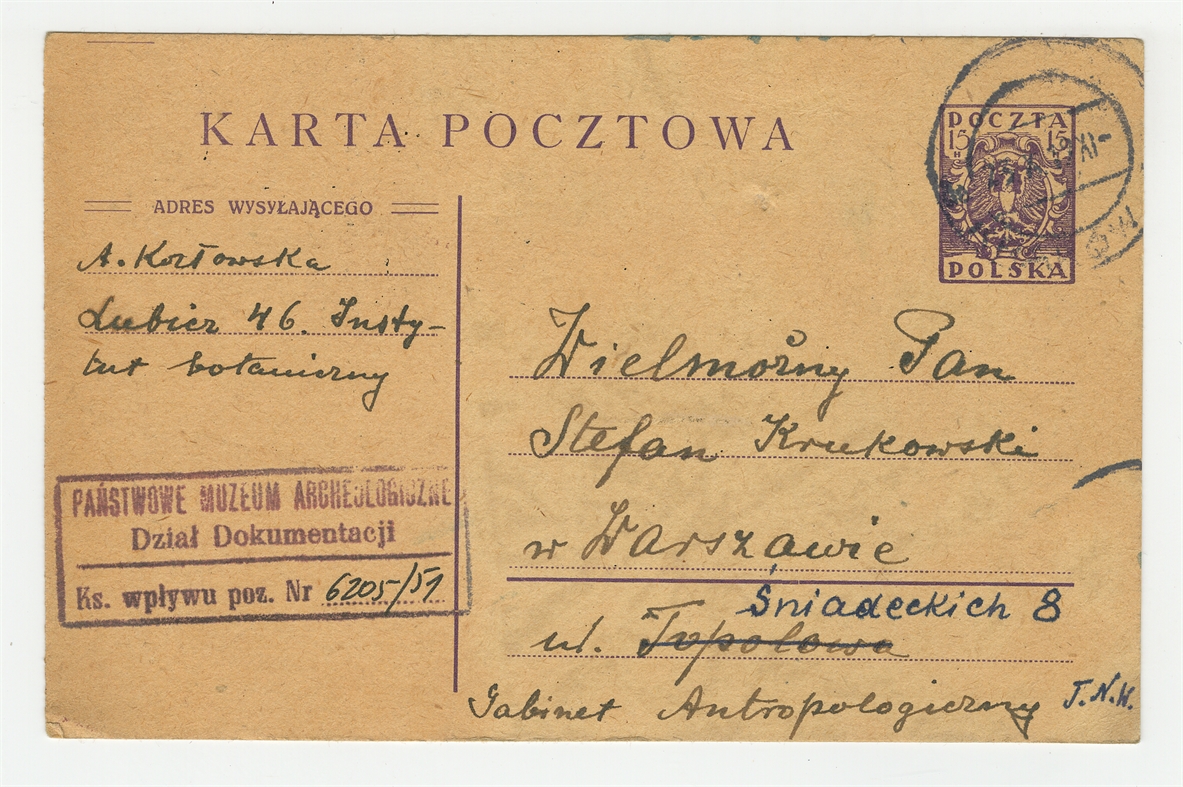 KARTA POCZTOWA
POCZTA
15 15
H
POLSKA
ADRES WYSYŁAJĄCEGO
A. Kozłowska
Lubicz 46. Insty-
tut botaniczny
Wielmożny Pan
Stefan Krukowski
w Warszawie
Śniadeckich 8
ul. Topolowa
Gabinet Antropologiczny T.N.W.
PAŃSTWOWE MUZEUM ARCHEOLOGICZNE
Dział Dokumentacji
Ks. wpływu poz. Nr 6205/51